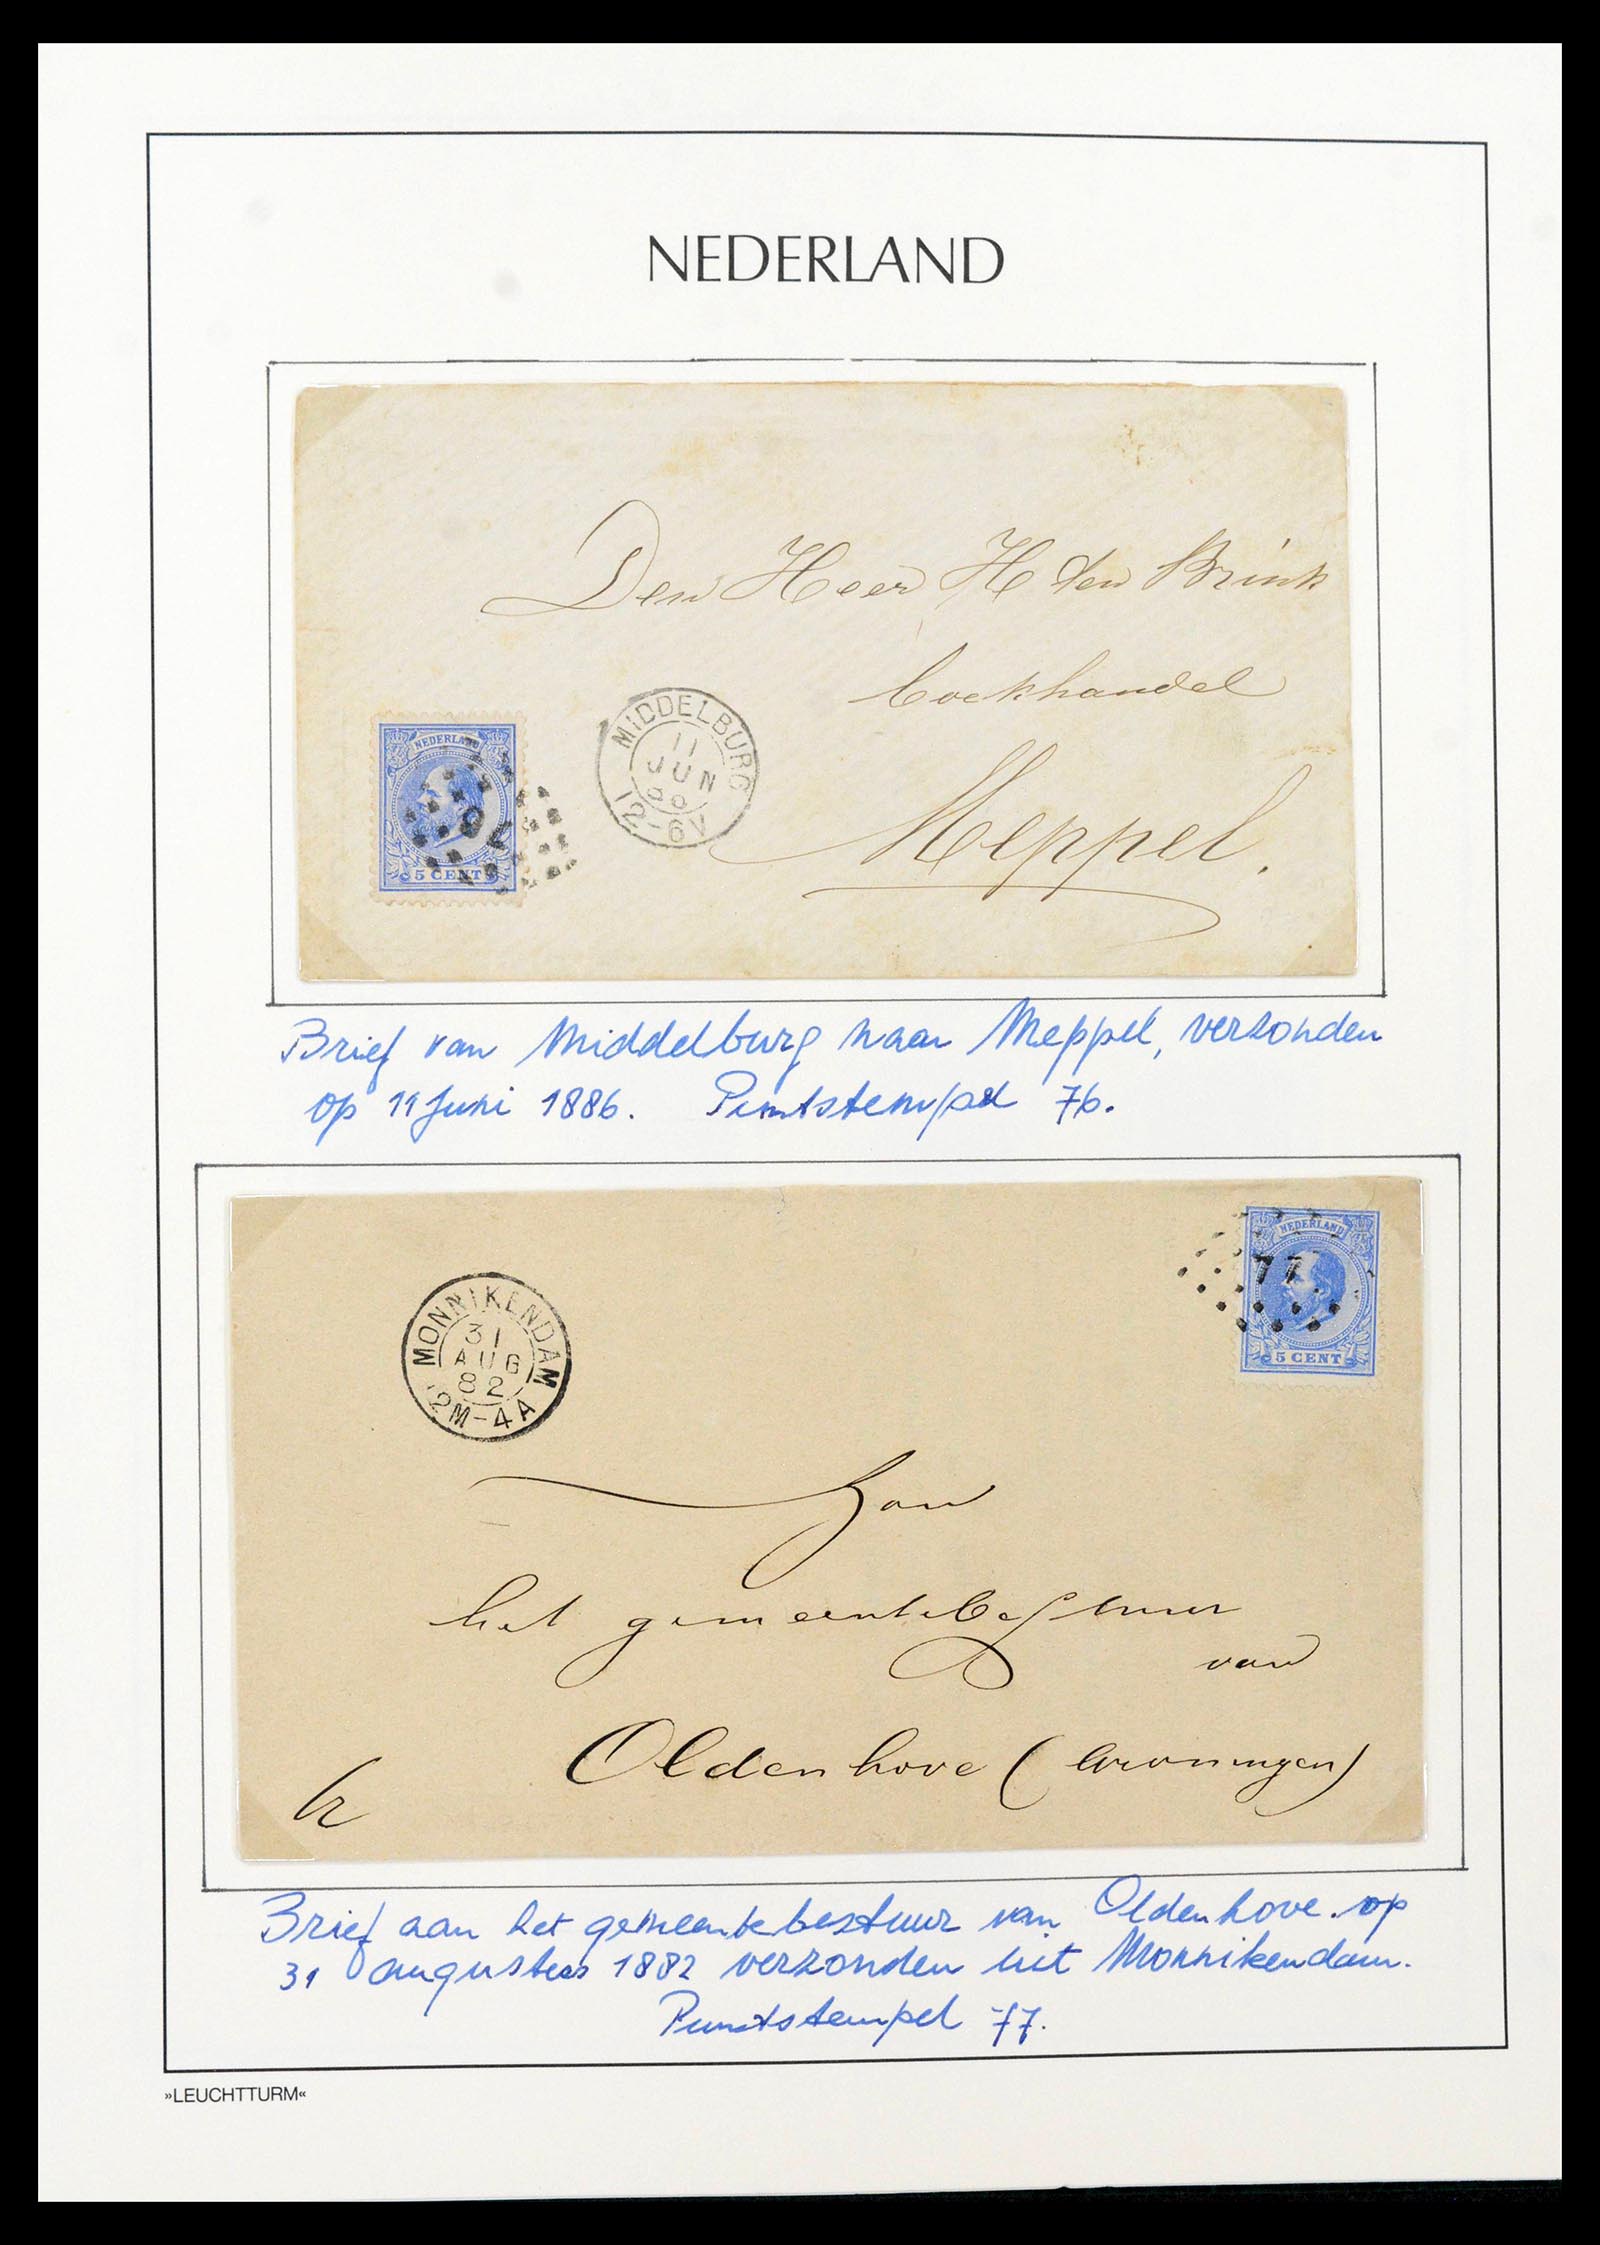 NEDERLAND
Den Heer H ten Brink
boekhandel
Meppel.
NEDERLAND
5 CENT
MIDDELBURG
11
JUN
12-6V
Brief van Middelburg naar Meppel, verzonden
op 11 Juni 1886. Puntstempel 76.
NEDERLAND
77
5 CENT
MONNIKENDAM
31
AUG
82
12M-4A
Aan
het gemeentebestuur
van
Oldenhove (Groningen)
Brief aan het gemeentebestuur van Oldenhove. op
31 augustus 1882 verzonden uit Monnikendam.
Puntstempel 77.
»LEUCHTTURM«